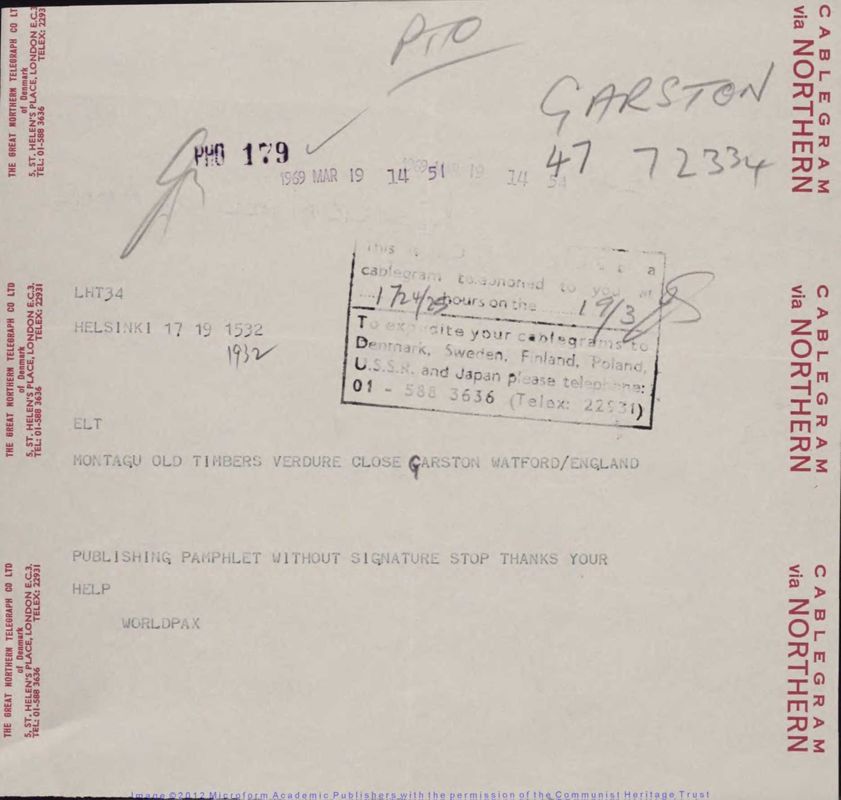 PTO
GARSTON
47 72334
PHO 179
1969 MAR 19 14 51
LHT34
HELSINKI 17 19 1532
1932
This is a
cablegram telephoned to you at
1724/25 hours on the 19/3
To expedite your cablegrams to
Denmark, Sweden, Finland, Poland,
U.S.S.R. and Japan please telephone:
01 - 588 3636 (Telex: 22931)
ELT
MONTAGU OLD TIMBERS VERDURE CLOSE GARSTON WATFORD/ENGLAND
PUBLISHING PAMPHLET WITHOUT SIGNATURE STOP THANKS YOUR
HELP
WORLDPAX
THE GREAT NORTHERN TELEGRAPH CO LT
of Denmark
5, ST. HELEN'S PLACE, LONDON E.C.3.
TEL: 01-588 3636 TELEX: 2293
THE GREAT NORTHERN TELEGRAPH CO LTD
of Denmark
5, ST. HELEN'S PLACE, LONDON E.C.3.
TEL: 01-588 3636 TELEX: 22931
THE GREAT NORTHERN TELEGRAPH CO LTD
of Denmark
5, ST. HELEN'S PLACE, LONDON E.C.3.
TEL: 01-588 3636 TELEX: 22931
CABLEGRAM
via NORTHERN
CABLEGRAM
via NORTHERN
CABLEGRAM
via NORTHERN
Image ©2012 Microform Academic Publishers with the permission of the Communist Heritage Trust